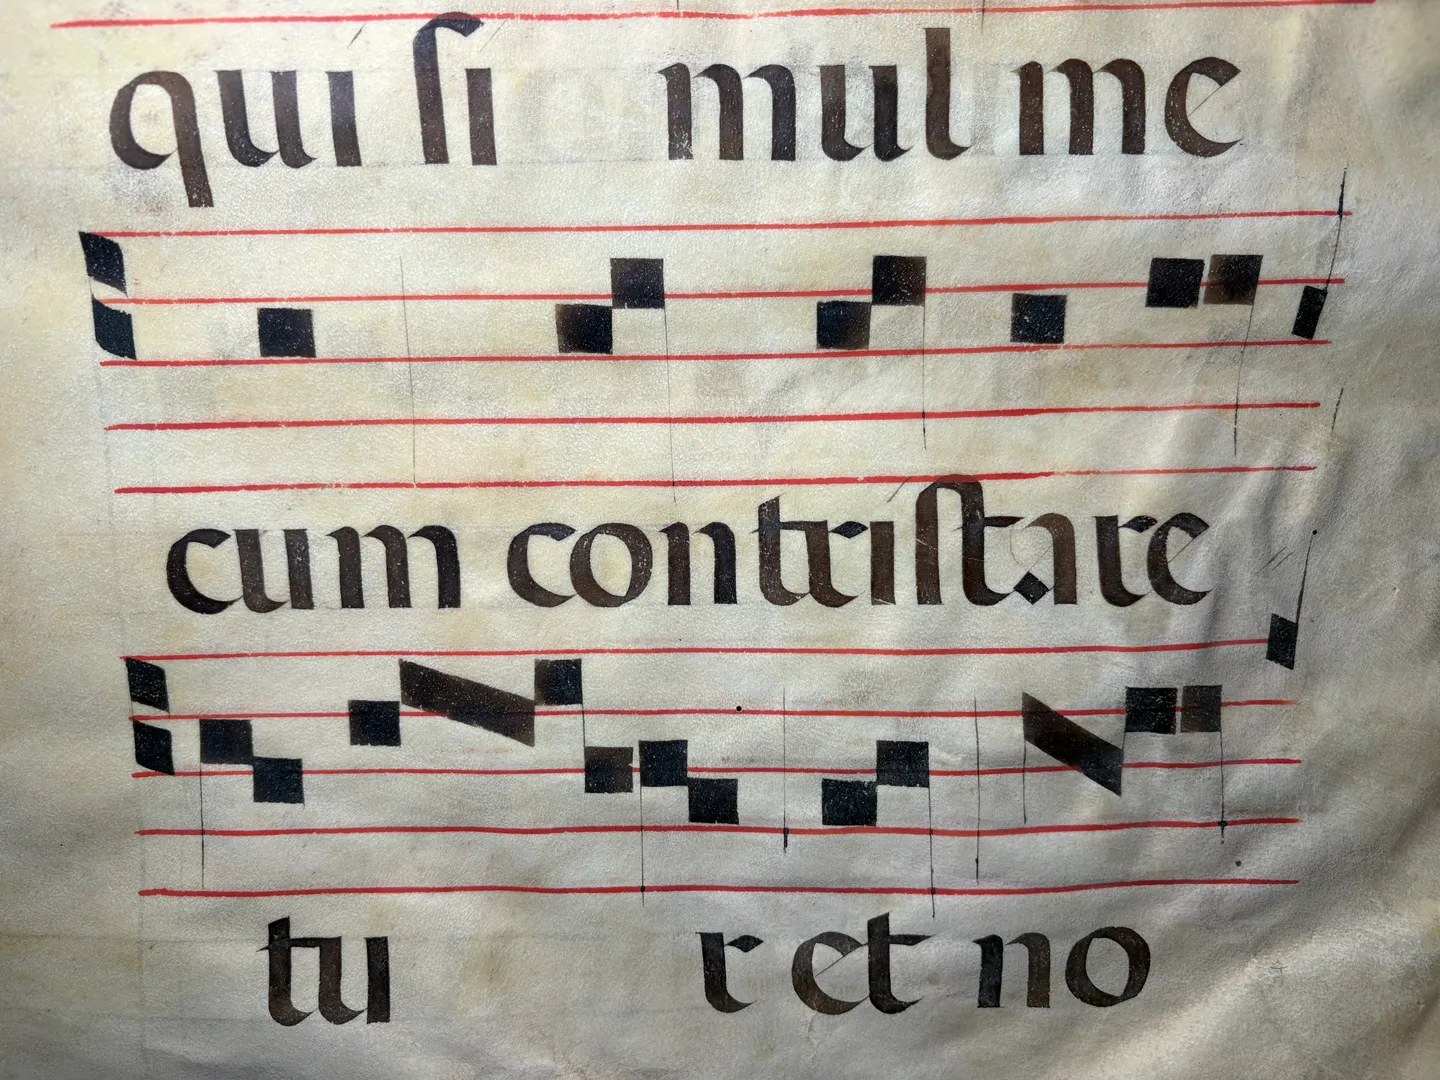 qui si mul me
cum contristare
tu r et no